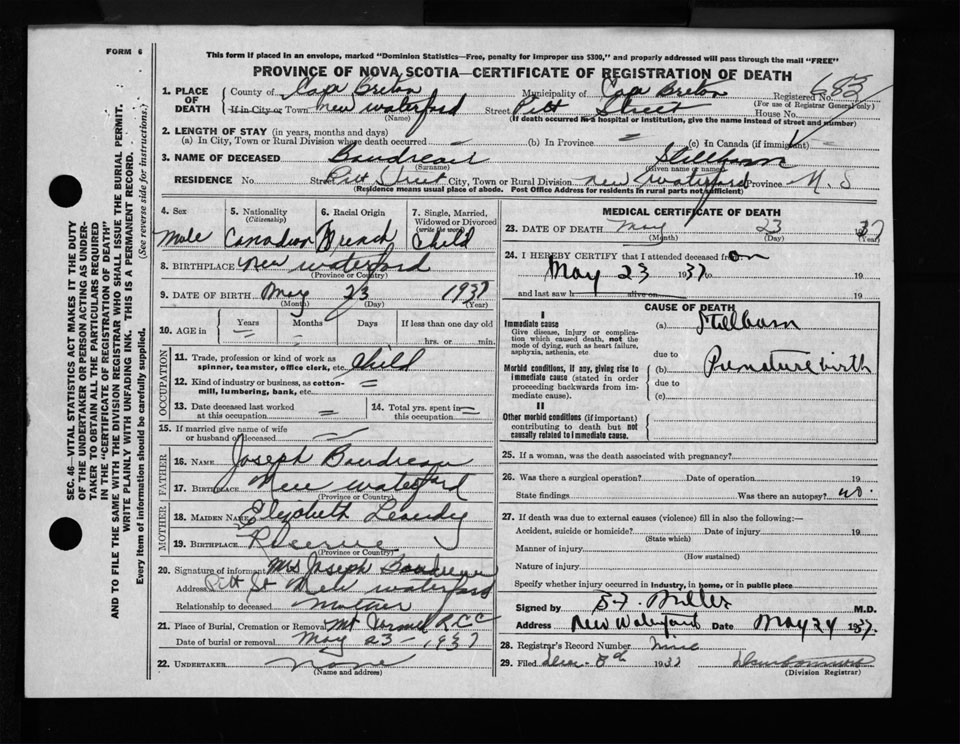 FORM 6
This form if placed in an envelope, marked "Dominion Statistics—Free, penalty for improper use $300," and properly addressed will pass through the mail "FREE"
PROVINCE OF NOVA SCOTIA—CERTIFICATE OF REGISTRATION OF DEATH
SEC. 46—VITAL STATISTICS ACT MAKES IT THE DUTY
OF THE UNDERTAKER OR PERSON ACTING AS UNDER-
TAKER TO OBTAIN ALL THE PARTICULARS REQUIRED
IN THE "CERTIFICATE OF REGISTRATION OF DEATH"
AND TO FILE THE SAME WITH THE DIVISION REGISTRAR WHO SHALL ISSUE THE BURIAL PERMIT.
WRITE PLAINLY WITH UNFADING INK. THIS IS A PERMANENT RECORD.
Every item of information should be carefully supplied. (See reverse side for instructions.)
1. PLACE OF DEATH County of Cape Breton Municipality of Cape Breton Registered No. 683
(For use of Registrar General only)
If in City or Town New Waterford Street Pitt Street House No.
(Name) (If death occurred in a hospital or institution, give the name instead of street and number)
2. LENGTH OF STAY (in years, months and days)
(a) In City, Town or Rural Division where death occurred — (b) In Province = (c) In Canada (if immigrant) =
3. NAME OF DECEASED Boudreau Stillborn
(Surname) (Given name or names)
RESIDENCE No. Street Pitt Street City, Town or Rural Division New Waterford Province N.S
(Residence means usual place of abode. Post Office Address for residents in rural parts not sufficient)
4. Sex 5. Nationality (Citizenship) 6. Racial Origin 7. Single, Married, Widowed or Divorced (write the word)
Male Canadian French Child
8. BIRTHPLACE New Waterford
(Province or Country)
9. DATE OF BIRTH May 23 1937
(Month) (Day) (Year)
10. AGE in Years Months Days If less than one day old
— = hrs. or min.
OCCUPATION
11. Trade, profession or kind of work as spinner, teamster, office clerk, etc. Child
12. Kind of industry or business, as cotton-mill, lumbering, bank, etc. =
13. Date deceased last worked at this occupation = 14. Total yrs. spent in this occupation =
15. If married give name of wife or husband of deceased =
FATHER
16. NAME Joseph Boudreau
17. BIRTHPLACE New Waterford
(Province or Country)
MOTHER
18. MAIDEN NAME Elizabeth
19. BIRTHPLACE Reserve
(Province or Country)
20. Signature of informant Mrs Joseph Boudreau
Address Pitt St New Waterford
Relationship to deceased Mother
21. Place of Burial, Cremation or Removal Mt Carmel R.C.C
Date of burial or removal May 23-1937
22. UNDERTAKER None
(Name and address)
MEDICAL CERTIFICATE OF DEATH
23. DATE OF DEATH May 23 37
(Month) (Day) (Year)
24. I HEREBY CERTIFY that I attended deceased from on
May 23 1937 to 19
and last saw h alive on 19
CAUSE OF DEATH
I
Immediate cause (a) Stillborn
Give disease, injury or complication which caused death, not the mode of dying, such as heart failure, asphyxia, asthenia, etc
due to
Morbid conditions, if any, giving rise to immediate cause (stated in order proceeding backwards from immediate cause). (b) Premature birth
due to
(c)
II
Other morbid conditions (if important) contributing to death but not causally related to immediate cause.
25. If a woman, was the death associated with pregnancy?
26. Was there a surgical operation? Date of operation 19
State findings Was there an autopsy? no.
27. If death was due to external causes (violence) fill in also the following:—
Accident, suicide or homicide? Date of injury 19
(State which)
Manner of injury
(How sustained)
Nature of injury
Specify whether injury occurred in industry, in home, or in public place
Signed by Miller M.D.
Address New Waterford Date May 24 1937.
28. Registrar's Record Number Nine
29. Filed 8th 1937
(Division Registrar)